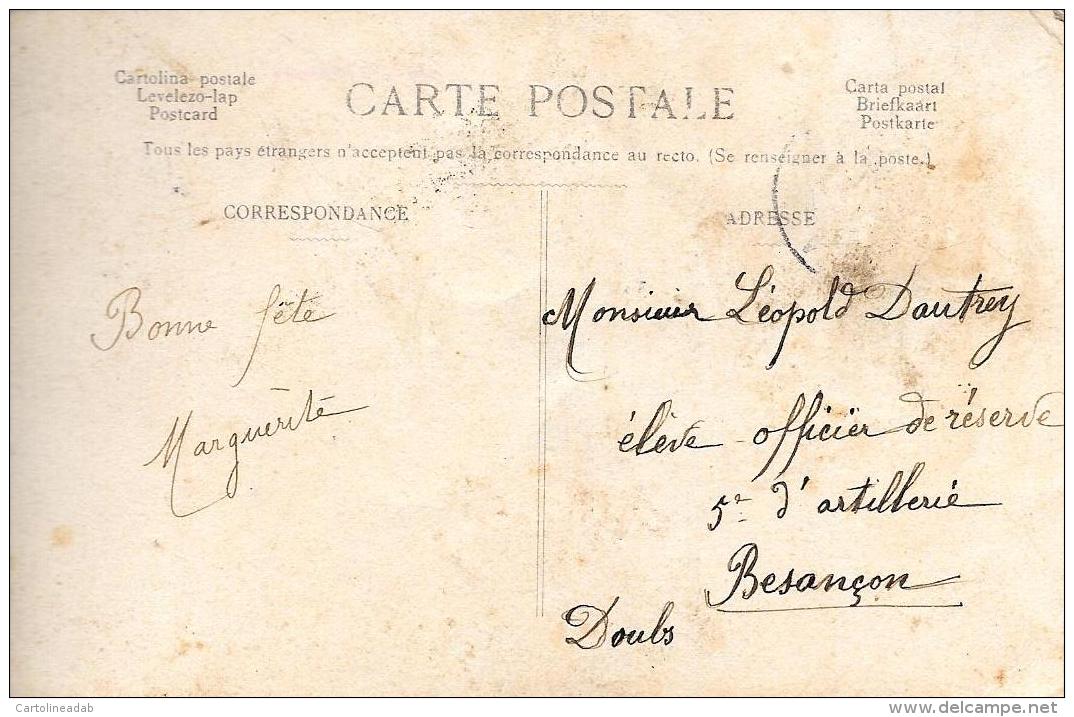 Cartolina postale
Levelezo-lap
Postcard
CARTE POSTALE
Carta postal
Briefkaart
Postkarte
Tous les pays étrangers n'acceptent pas la correspondance au recto. (Se renseigner à la poste.)
CORRESPONDANCE
ADRESSE
Bonne fête
Marguerite
Monsieur Léopold Dautrey
élève officier de réserve
5e d'artillerie
Besançon
Doubs
Cartolineadab
delcampe.net